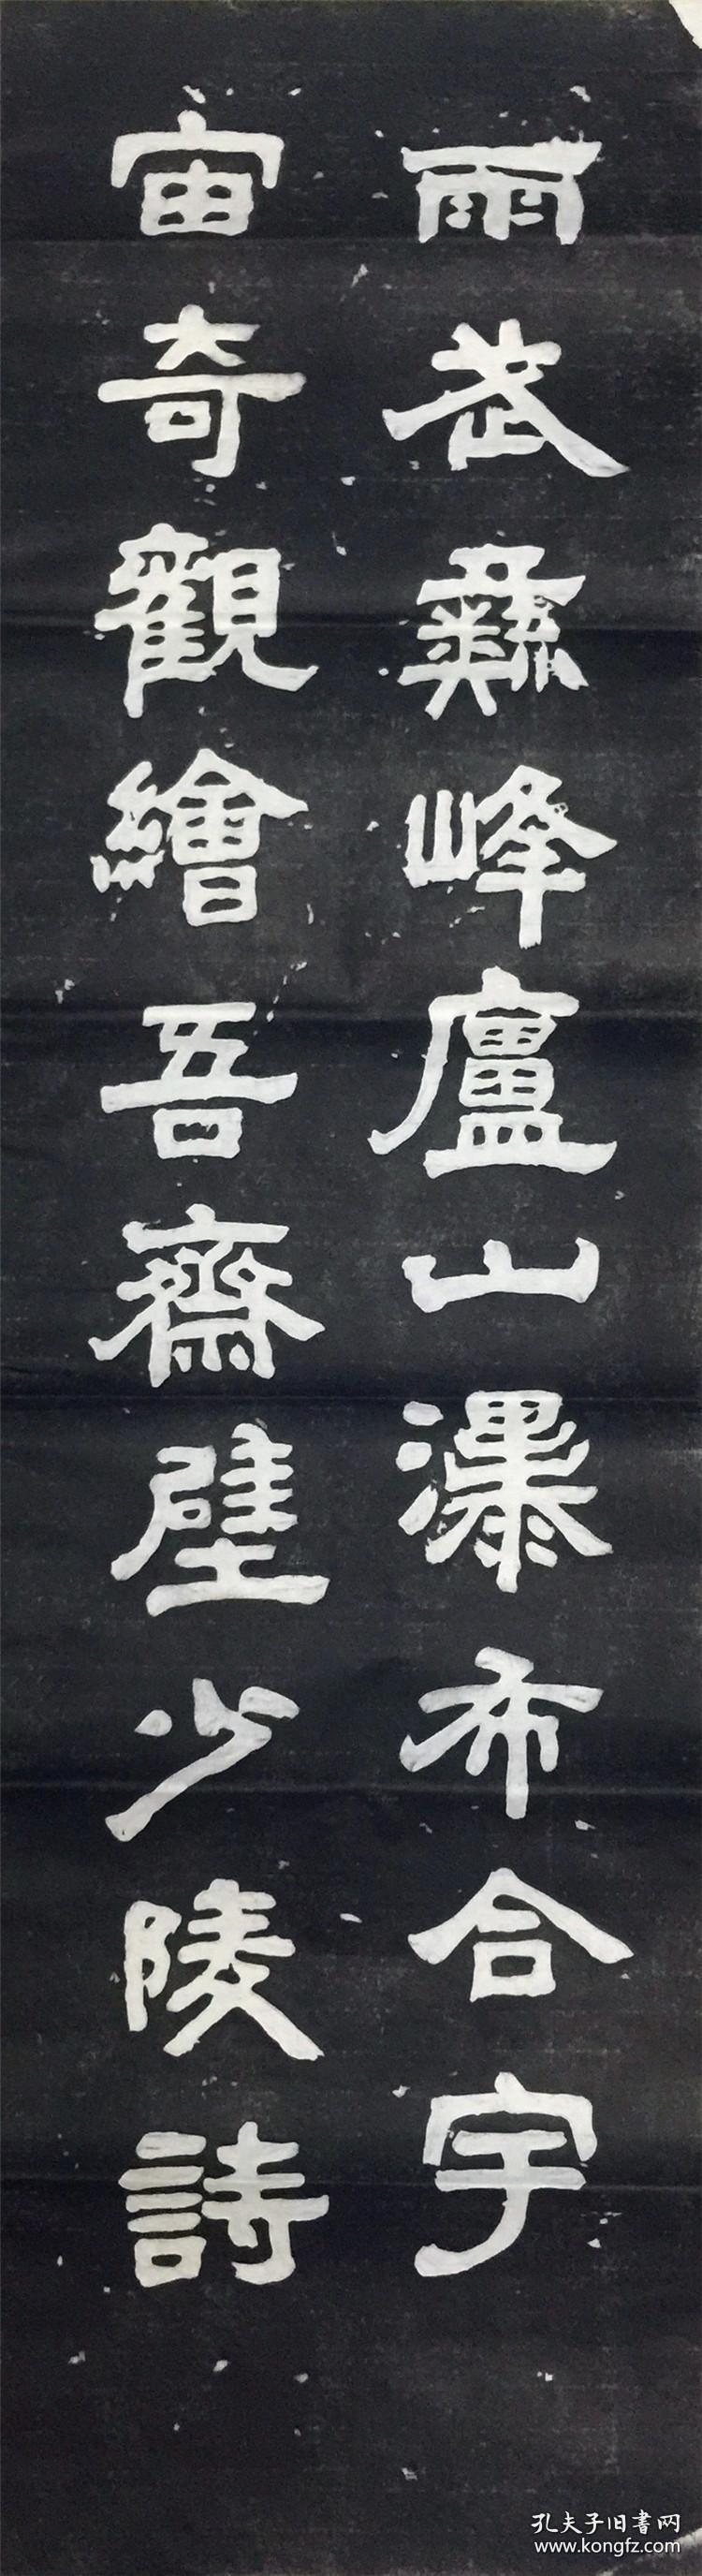 雨武彝峰廬山瀑布合宇
宙奇觀繪吾齋壁少陵詩
孔夫子旧書网
www.kongfz.com